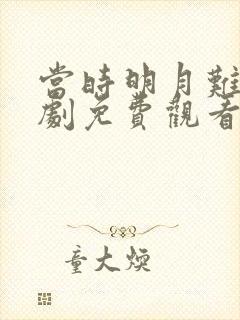 當時明月難
劇免費觀看
童大煥